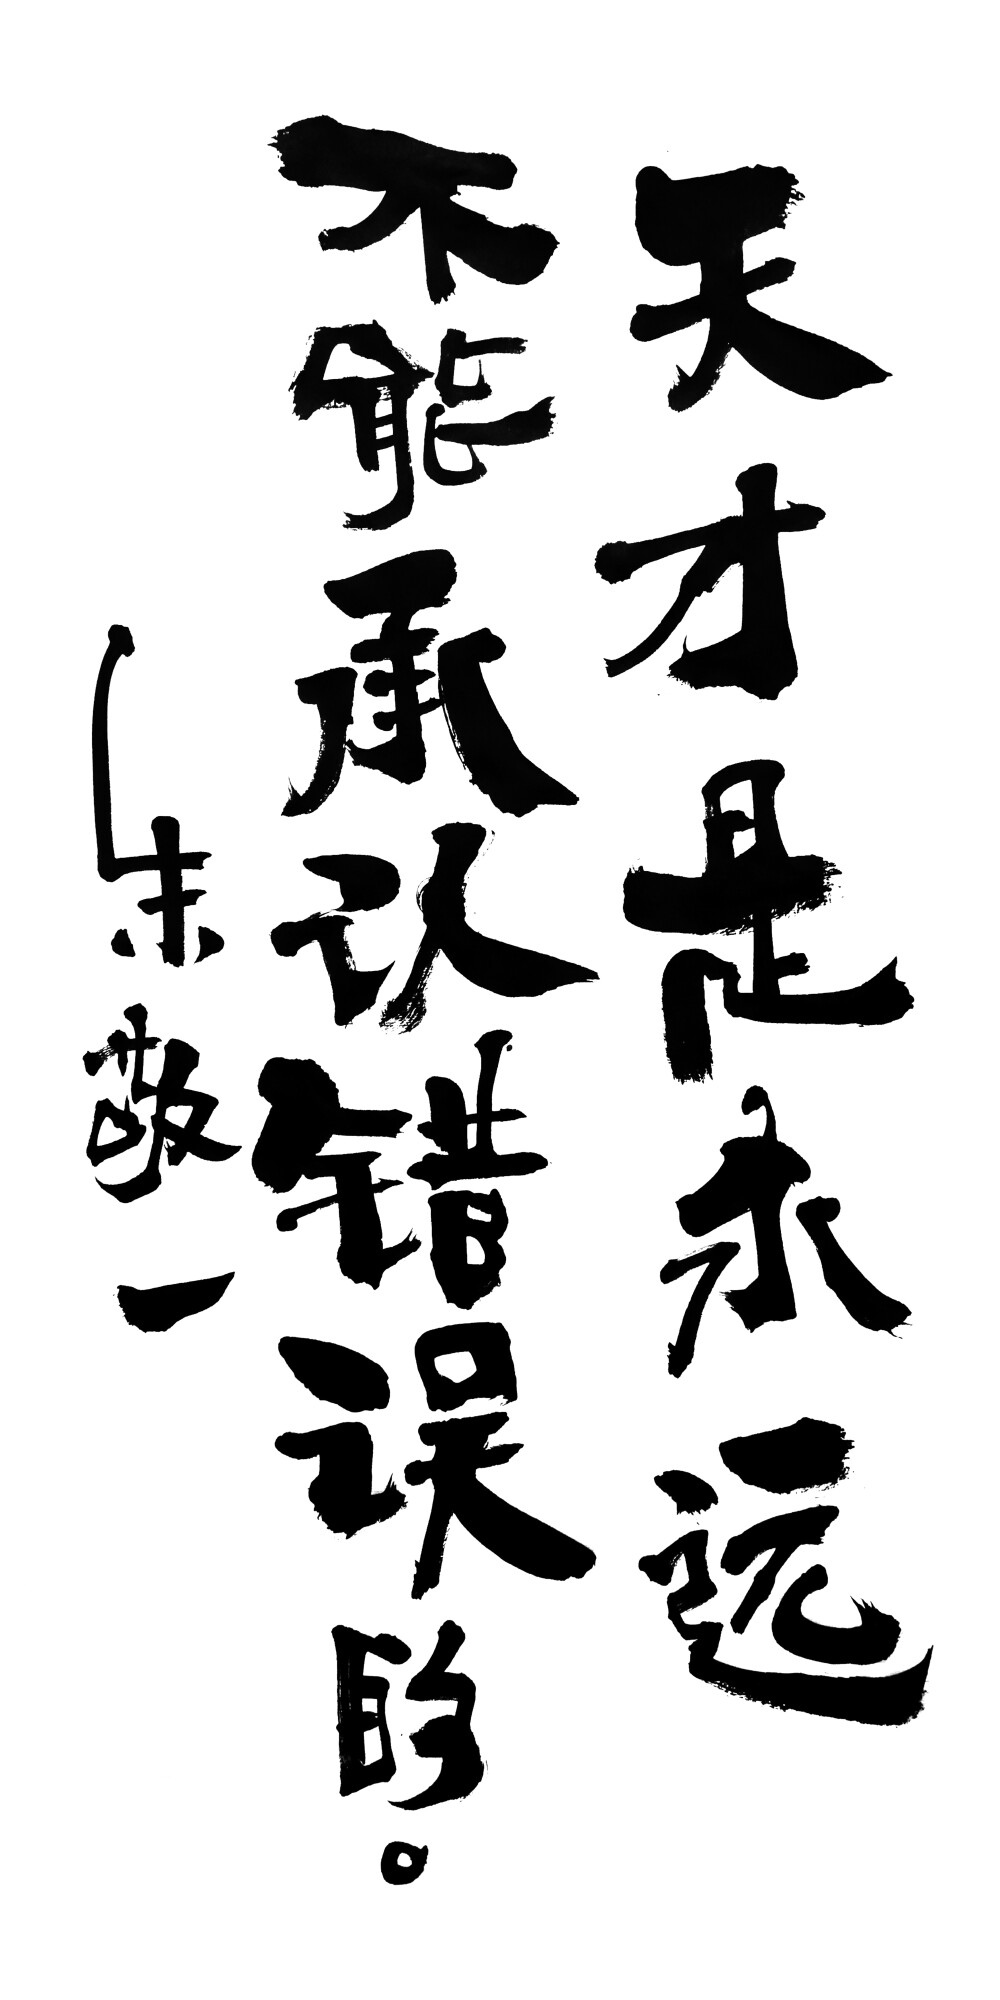 天才是永远
不能承认错误的。
朱敬一